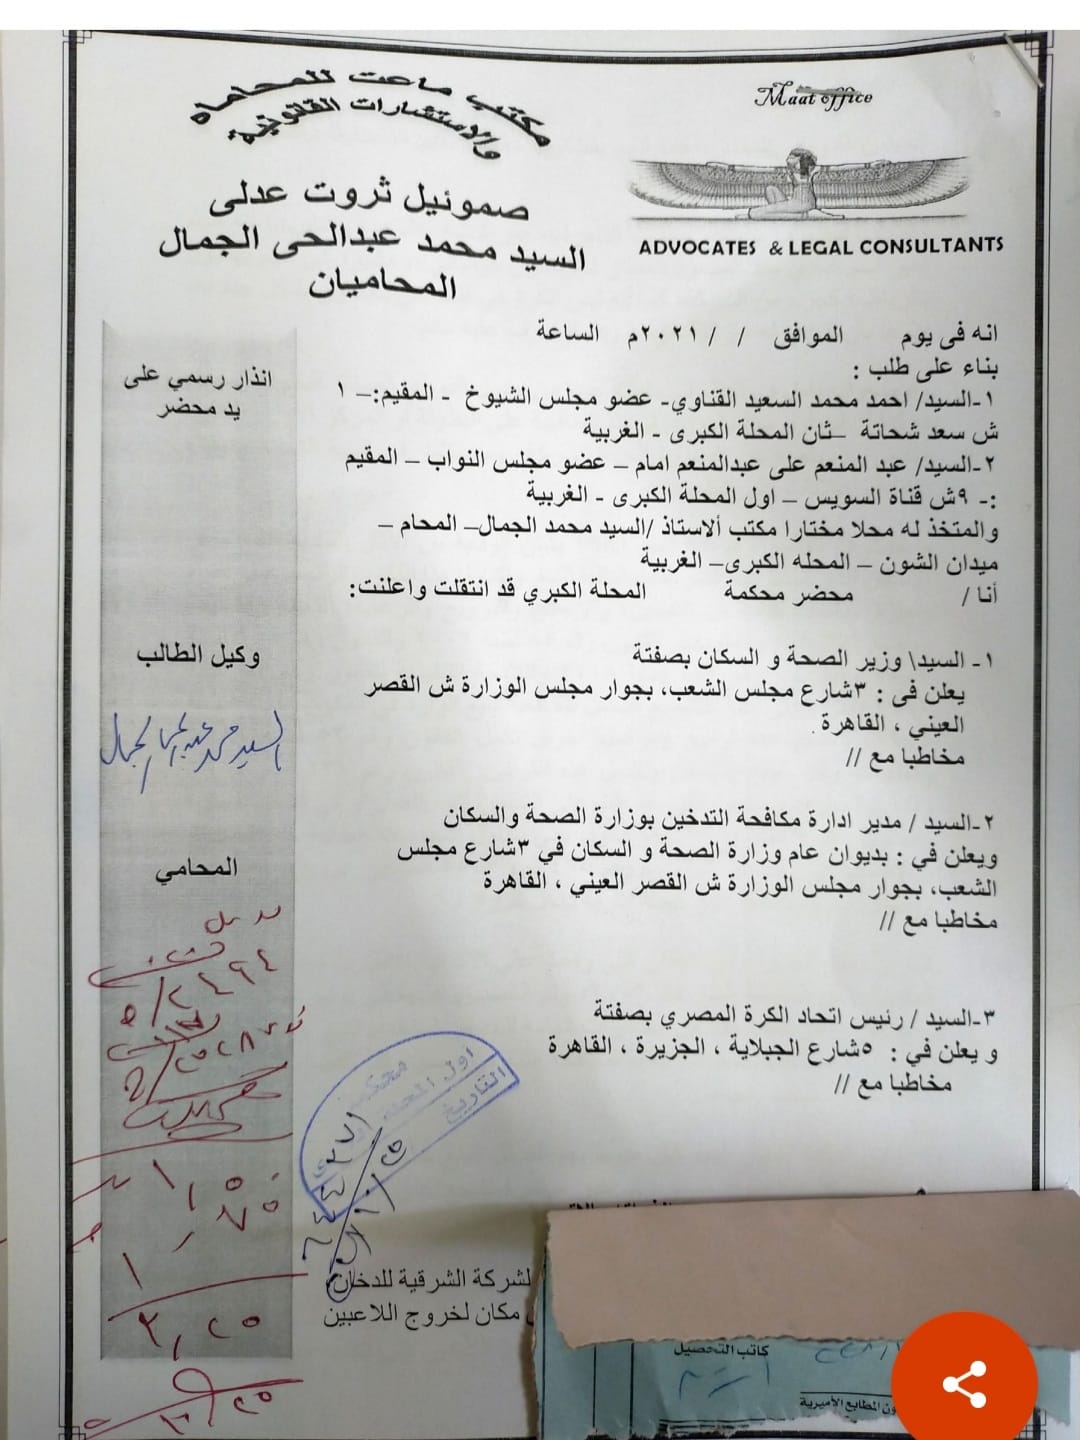 مكتب ماعت للمحاماه
والاستشارات القانونية
صموئيل ثروت عدلى
السيد محمد عبدالحى الجمال
المحاميان
Maat office
ADVOCATES & LEGAL CONSULTANTS
انه فى يوم الموافق / / ٢٠٢١م الساعة
بناء على طلب :
١-السيد/ احمد محمد السعيد القناوي- عضو مجلس الشيوخ - المقيم:- ١
ش سعد شحاتة –ثان المحلة الكبرى - الغربية
٢-السيد/ عبد المنعم على عبدالمنعم امام – عضو مجلس النواب – المقيم
:- ٩ش قناة السويس – اول المحلة الكبرى - الغربية
والمتخذ له محلا مختارا مكتب ألاستاذ /السيد محمد الجمال– المحام –
ميدان الشون – المحله الكبرى– الغربية
أنا / محضر محكمة المحلة الكبري قد انتقلت واعلنت:
١- السيد\ وزير الصحة و السكان بصفتة
يعلن فى : ٣شارع مجلس الشعب، بجوار مجلس الوزارة ش القصر
العيني ، القاهرة .
مخاطبا مع //
٢-السيد / مدير ادارة مكافحة التدخين بوزارة الصحة والسكان
ويعلن في : بديوان عام وزارة الصحة و السكان في ٣شارع مجلس
الشعب، بجوار مجلس الوزارة ش القصر العيني ، القاهرة
مخاطبا مع //
٣-السيد / رئيس اتحاد الكرة المصري بصفتة
و يعلن في : ٥شارع الجبلاية ، الجزيرة ، القاهرة
مخاطبا مع //
لشركة الشرقية للدخان
مكان لخروج اللاعبين
انذار رسمي على
يد محضر
وكيل الطالب
السيد محمد عبدالحى الجمال
المحامي
محكمة
اول المحلة
التاريخ
١,٥٠
٣,٢٥
كاتب التحصيل
المطابع الأميرية